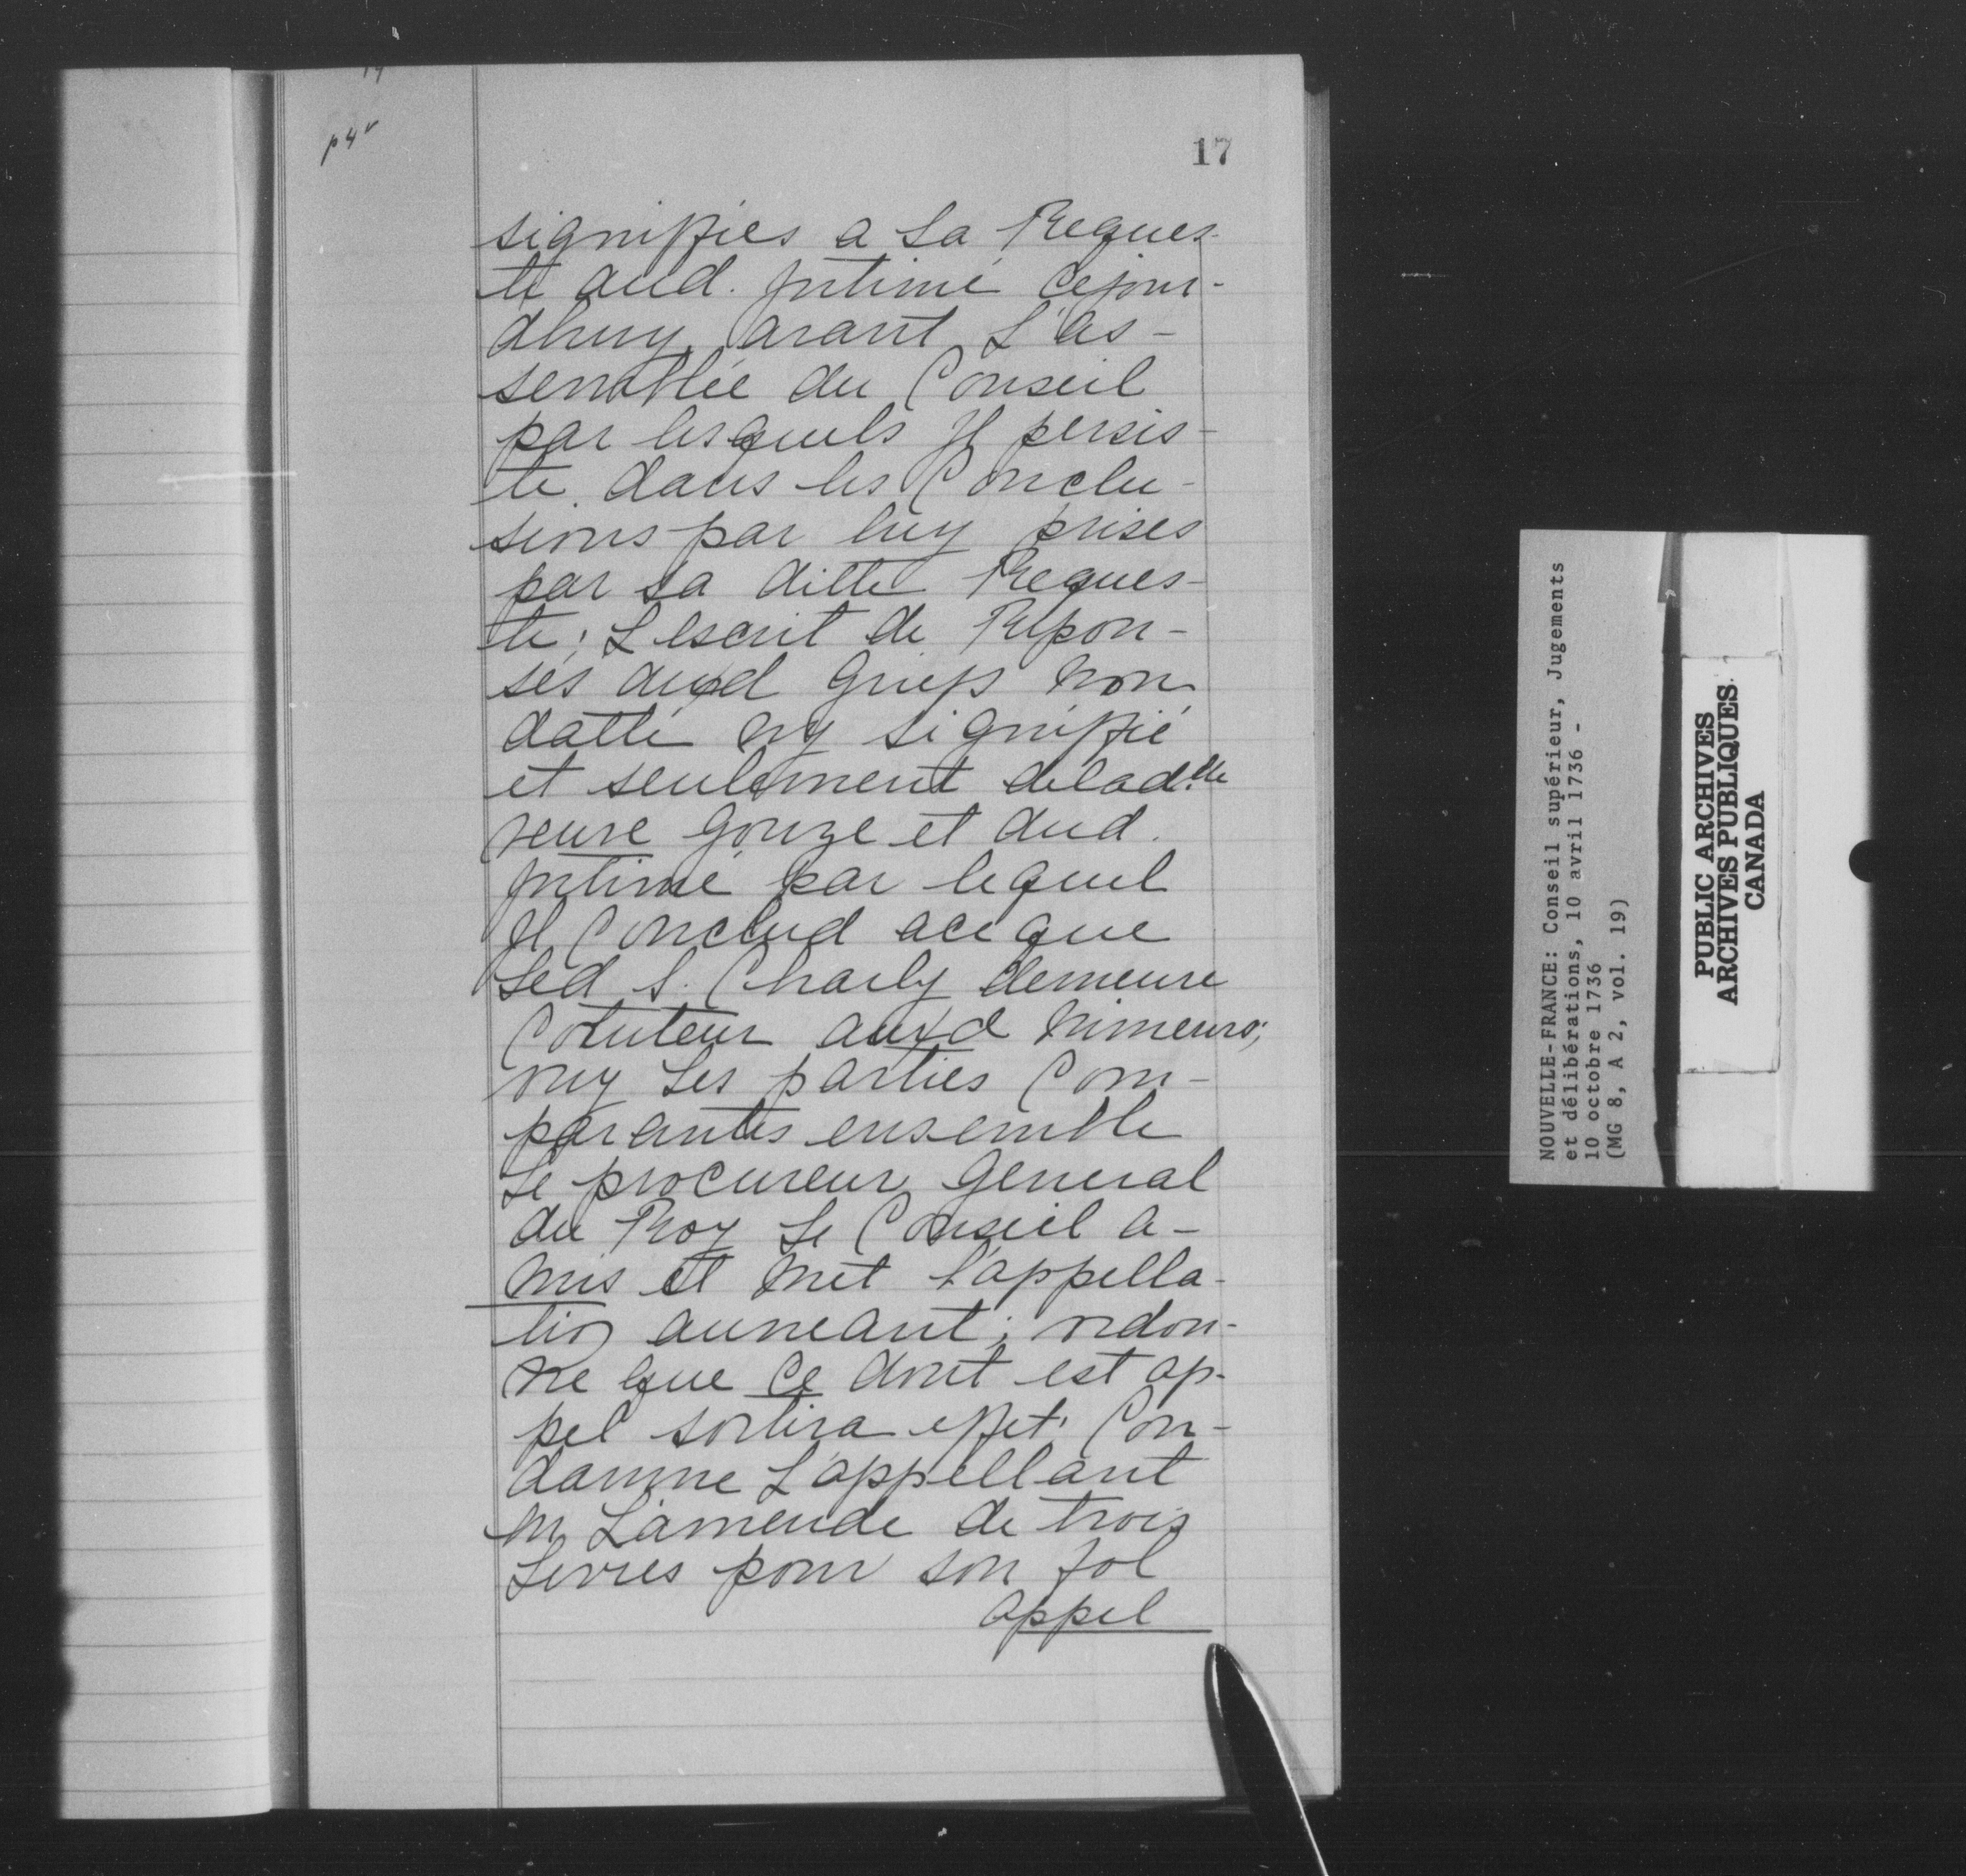 p 4 v
17
signiffiés a Sa Reques-
te aud. Intimé Cejour-
dhuy, avant L'as-
semblée du Conseil
par lesquels Il persis-
te dans les Conclu-
sions par luy prises
par sa ditte Reques-
te; L'escrit de Répon-
ses auxd Griefs non
datté ny signiffié
et seulement deladelle
veuve Gouze et dud.
Intimé par lequel
Il Conclud ace que
Led S. Charly demeure
Cotuteur auxd Mineurs;
ouy Les parties Com-
parantes ensemble
Le procureur General
du Roy Le Conseil a-
mis et met L'appella-
tion auneant; ordon-
ne que Ce dont est ap-
pel sortira effet; Con-
damne L'appellant
en L'amende de trois
Livres pour son fol
appel
NOUVELLE-FRANCE: Conseil supérieur, Jugements
et délibérations, 10 avril 1736 -
10 octobre 1736
(MG 8, A 2, vol. 19)
PUBLIC ARCHIVES
ARCHIVES PUBLIQUES
CANADA